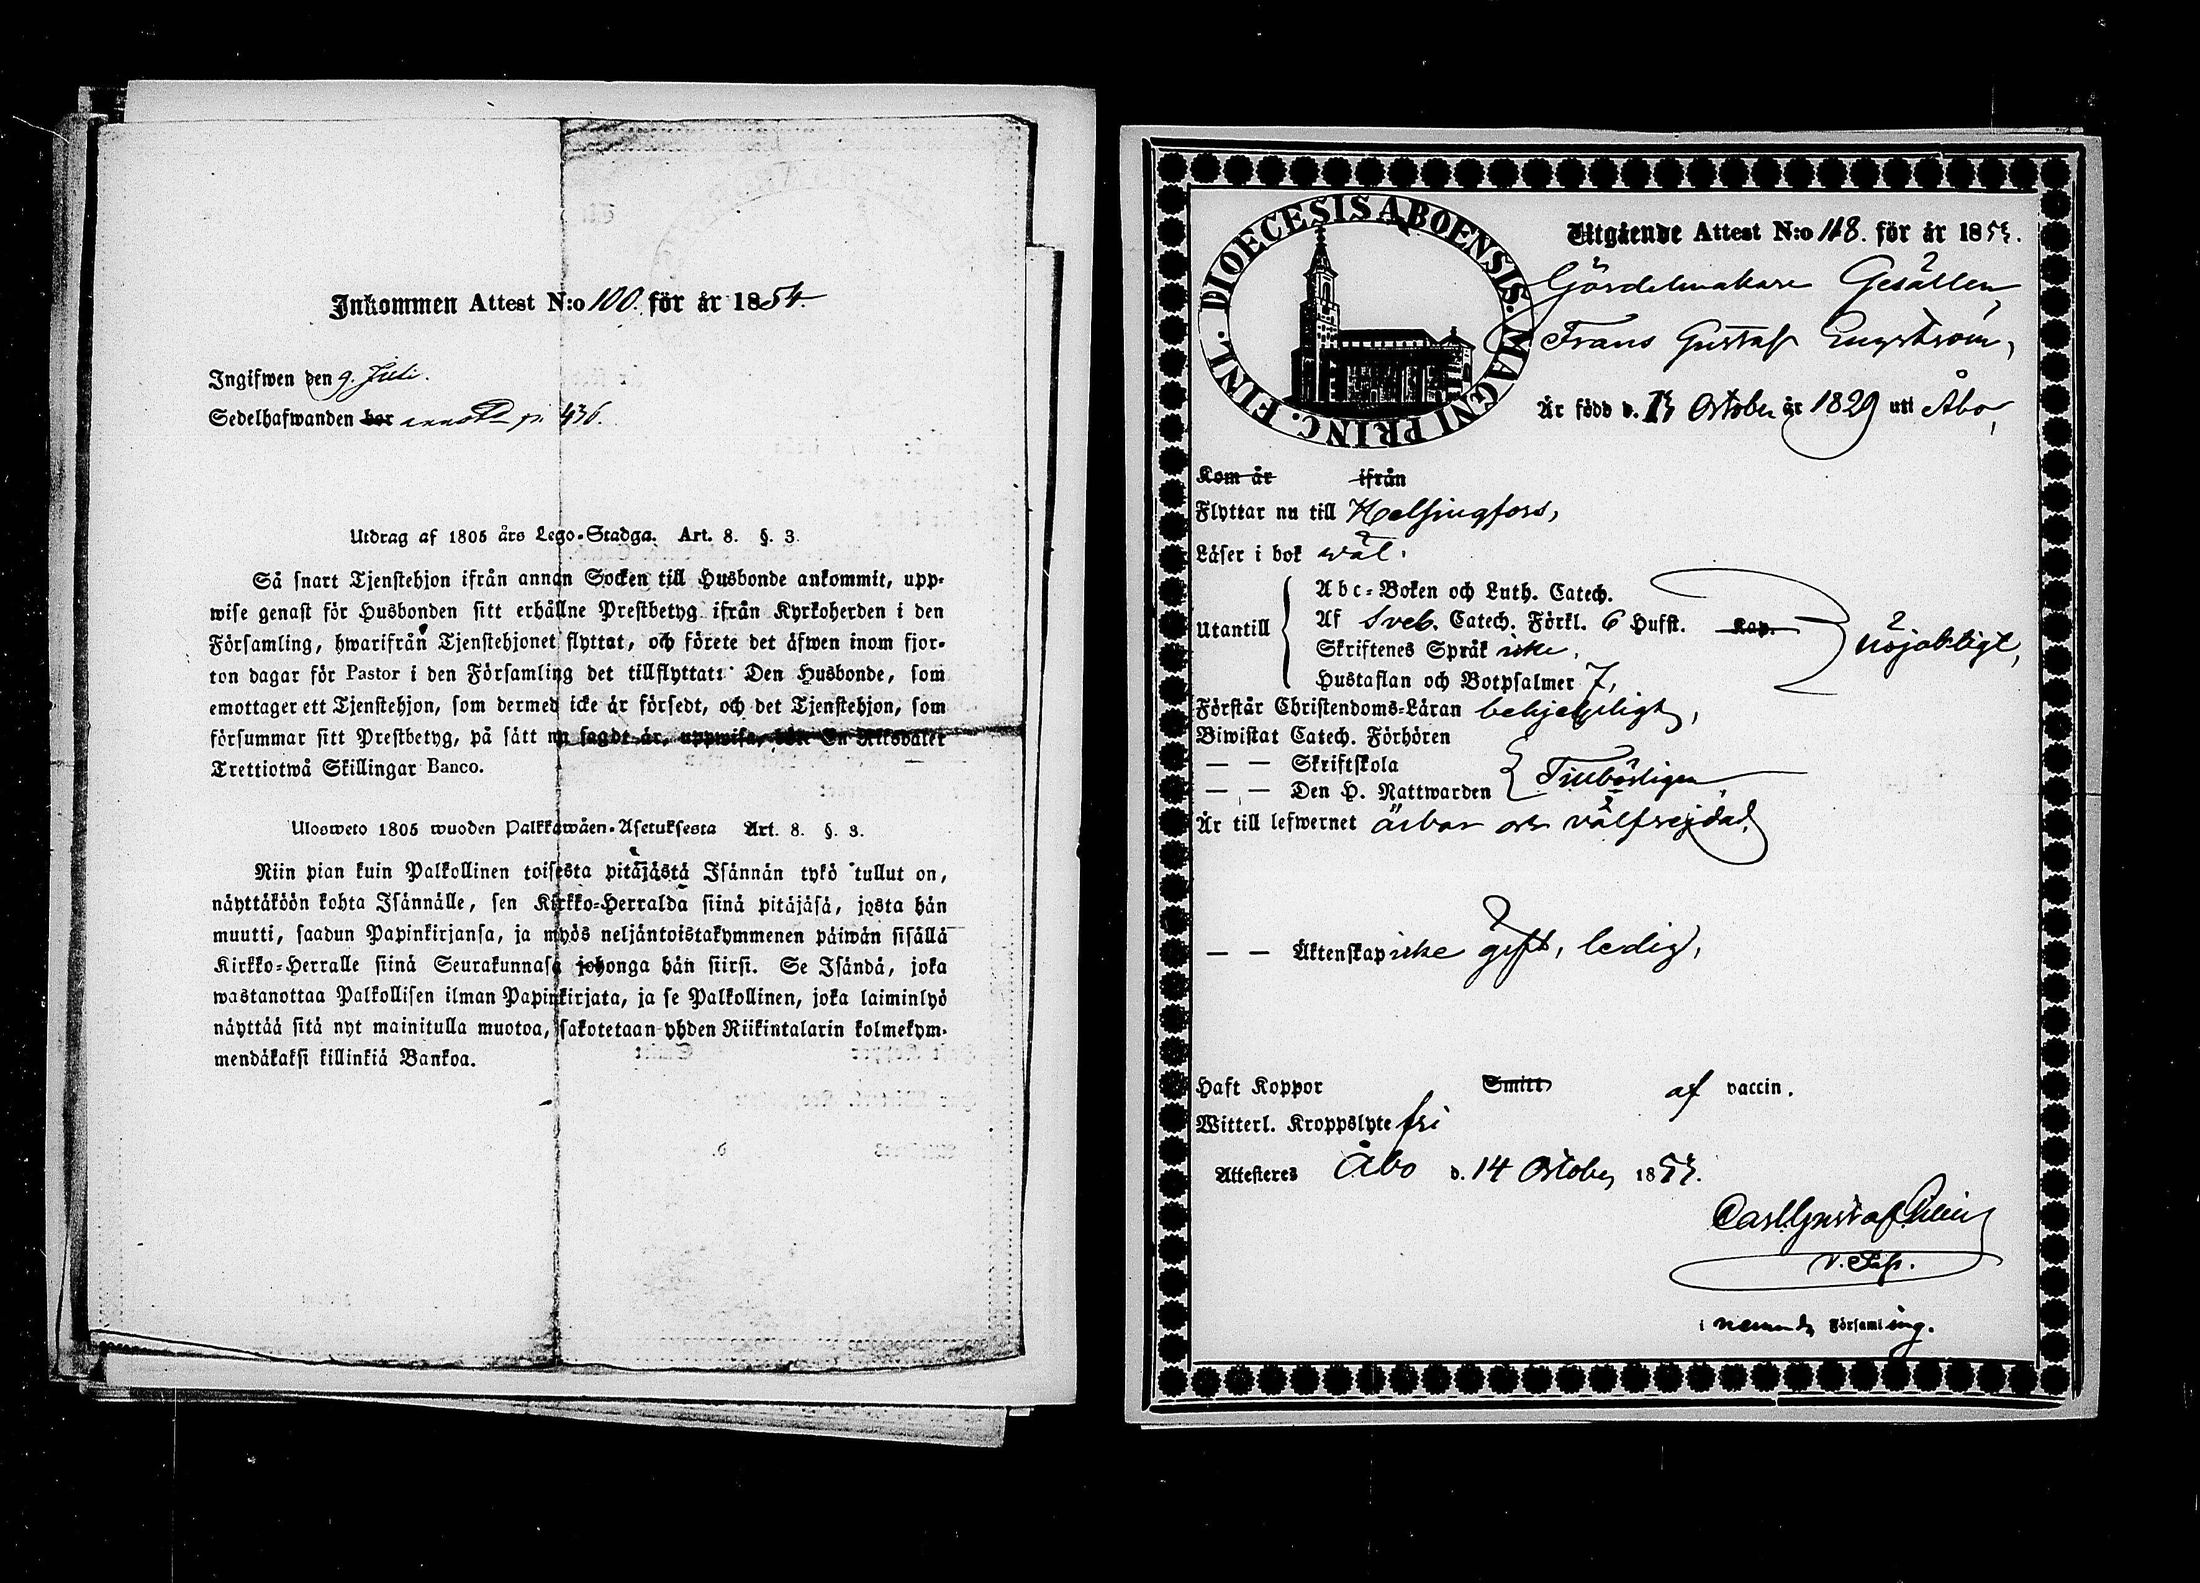 Inkommen Attest N:o 100. för år 1854
Ingifwen den 9. Juli.
Sedelhafwanden bor p. 436.
Utdrag af 1805 års Lego-Stadga. Art. 8. §. 3.
Så snart Tjenstehjon ifrån annan Socken till Husbonde ankommit, upp-
wise genast för Husbonden sitt erhållne Prestbetyg ifrån Kyrkoherden i den
Församling, hwarifrån Tjenstehjonet flyttat, och förete det äfwen inom fjor-
ton dagar för Pastor i den Församling det tillflyttat: Den Husbonde, som
emottager ett Tjenstehjon, som dermed icke är försedt, och det Tjenstehjon, som
försummar sitt Prestbetyg, på sätt nu sagdt är, uppwisa, böte En Riksdaler
Trettiotwå Skillingar Banco.
Ulosweto 1805 wuoden Palkkawäen-Asetuksesta Art. 8. §. 3.
Niin pian kuin Palkollinen toisesta pitäjästä Isännän tykö tullut on,
näyttäköön kohta Isännälle, sen Kirkko-Herralda siinä pitäjäsä, josta hän
muutti, saadun Papinkirjansa, ja myös neljäntoistakymmenen päiwän sisällä
Kirkko-Herralle siinä Seurakunnasa johonga hän siirsi. Se Isändä, joka
wastanottaa Palkollisen ilman Papinkirjata, ja se Palkollinen, joka laiminlyö
näyttää sitä nyt mainitulla muotoa, sakotetaan yhden Riikintalarin kolmekym-
mendäkaksi killinkiä Bankoa.
DIOECESIS ABOENSIS. MAGNI PRINC. FINL.
Utgående Attest N:o 118. för år 1853.
Gördelmakare Gesällen
Frans Gustaf Engström,
Är född d. 13 October år 1829 uti Åbo,
Kom år ifrån
Flyttar nu till Helsingfors,
Läser i bok wäl.
Utantill
Abc-Boken och Luth. Catech.
Af Sveb. Catech. Förkl. 6 Hufst. Kap.
nöjaktigt,
Skriftenes Språk icke,
Hustaflan och Botpsalmer 7,
Förstår Christendoms-Läran behjelpligt,
Biwistat Catech. Förhören
— — Skriftskola
Tillbörligen
— — Den H. Nattwarden
Är till lefwernet ärbar och välfrejdad,
— — Äktenskap icke gift, ledig,
Haft Koppor Smitt af vaccin.
Witterl. Kroppslyte fri
Attesteres Åbo d. 14 October 1853.
Carl Gustaf
v.
i nämnde Församling.